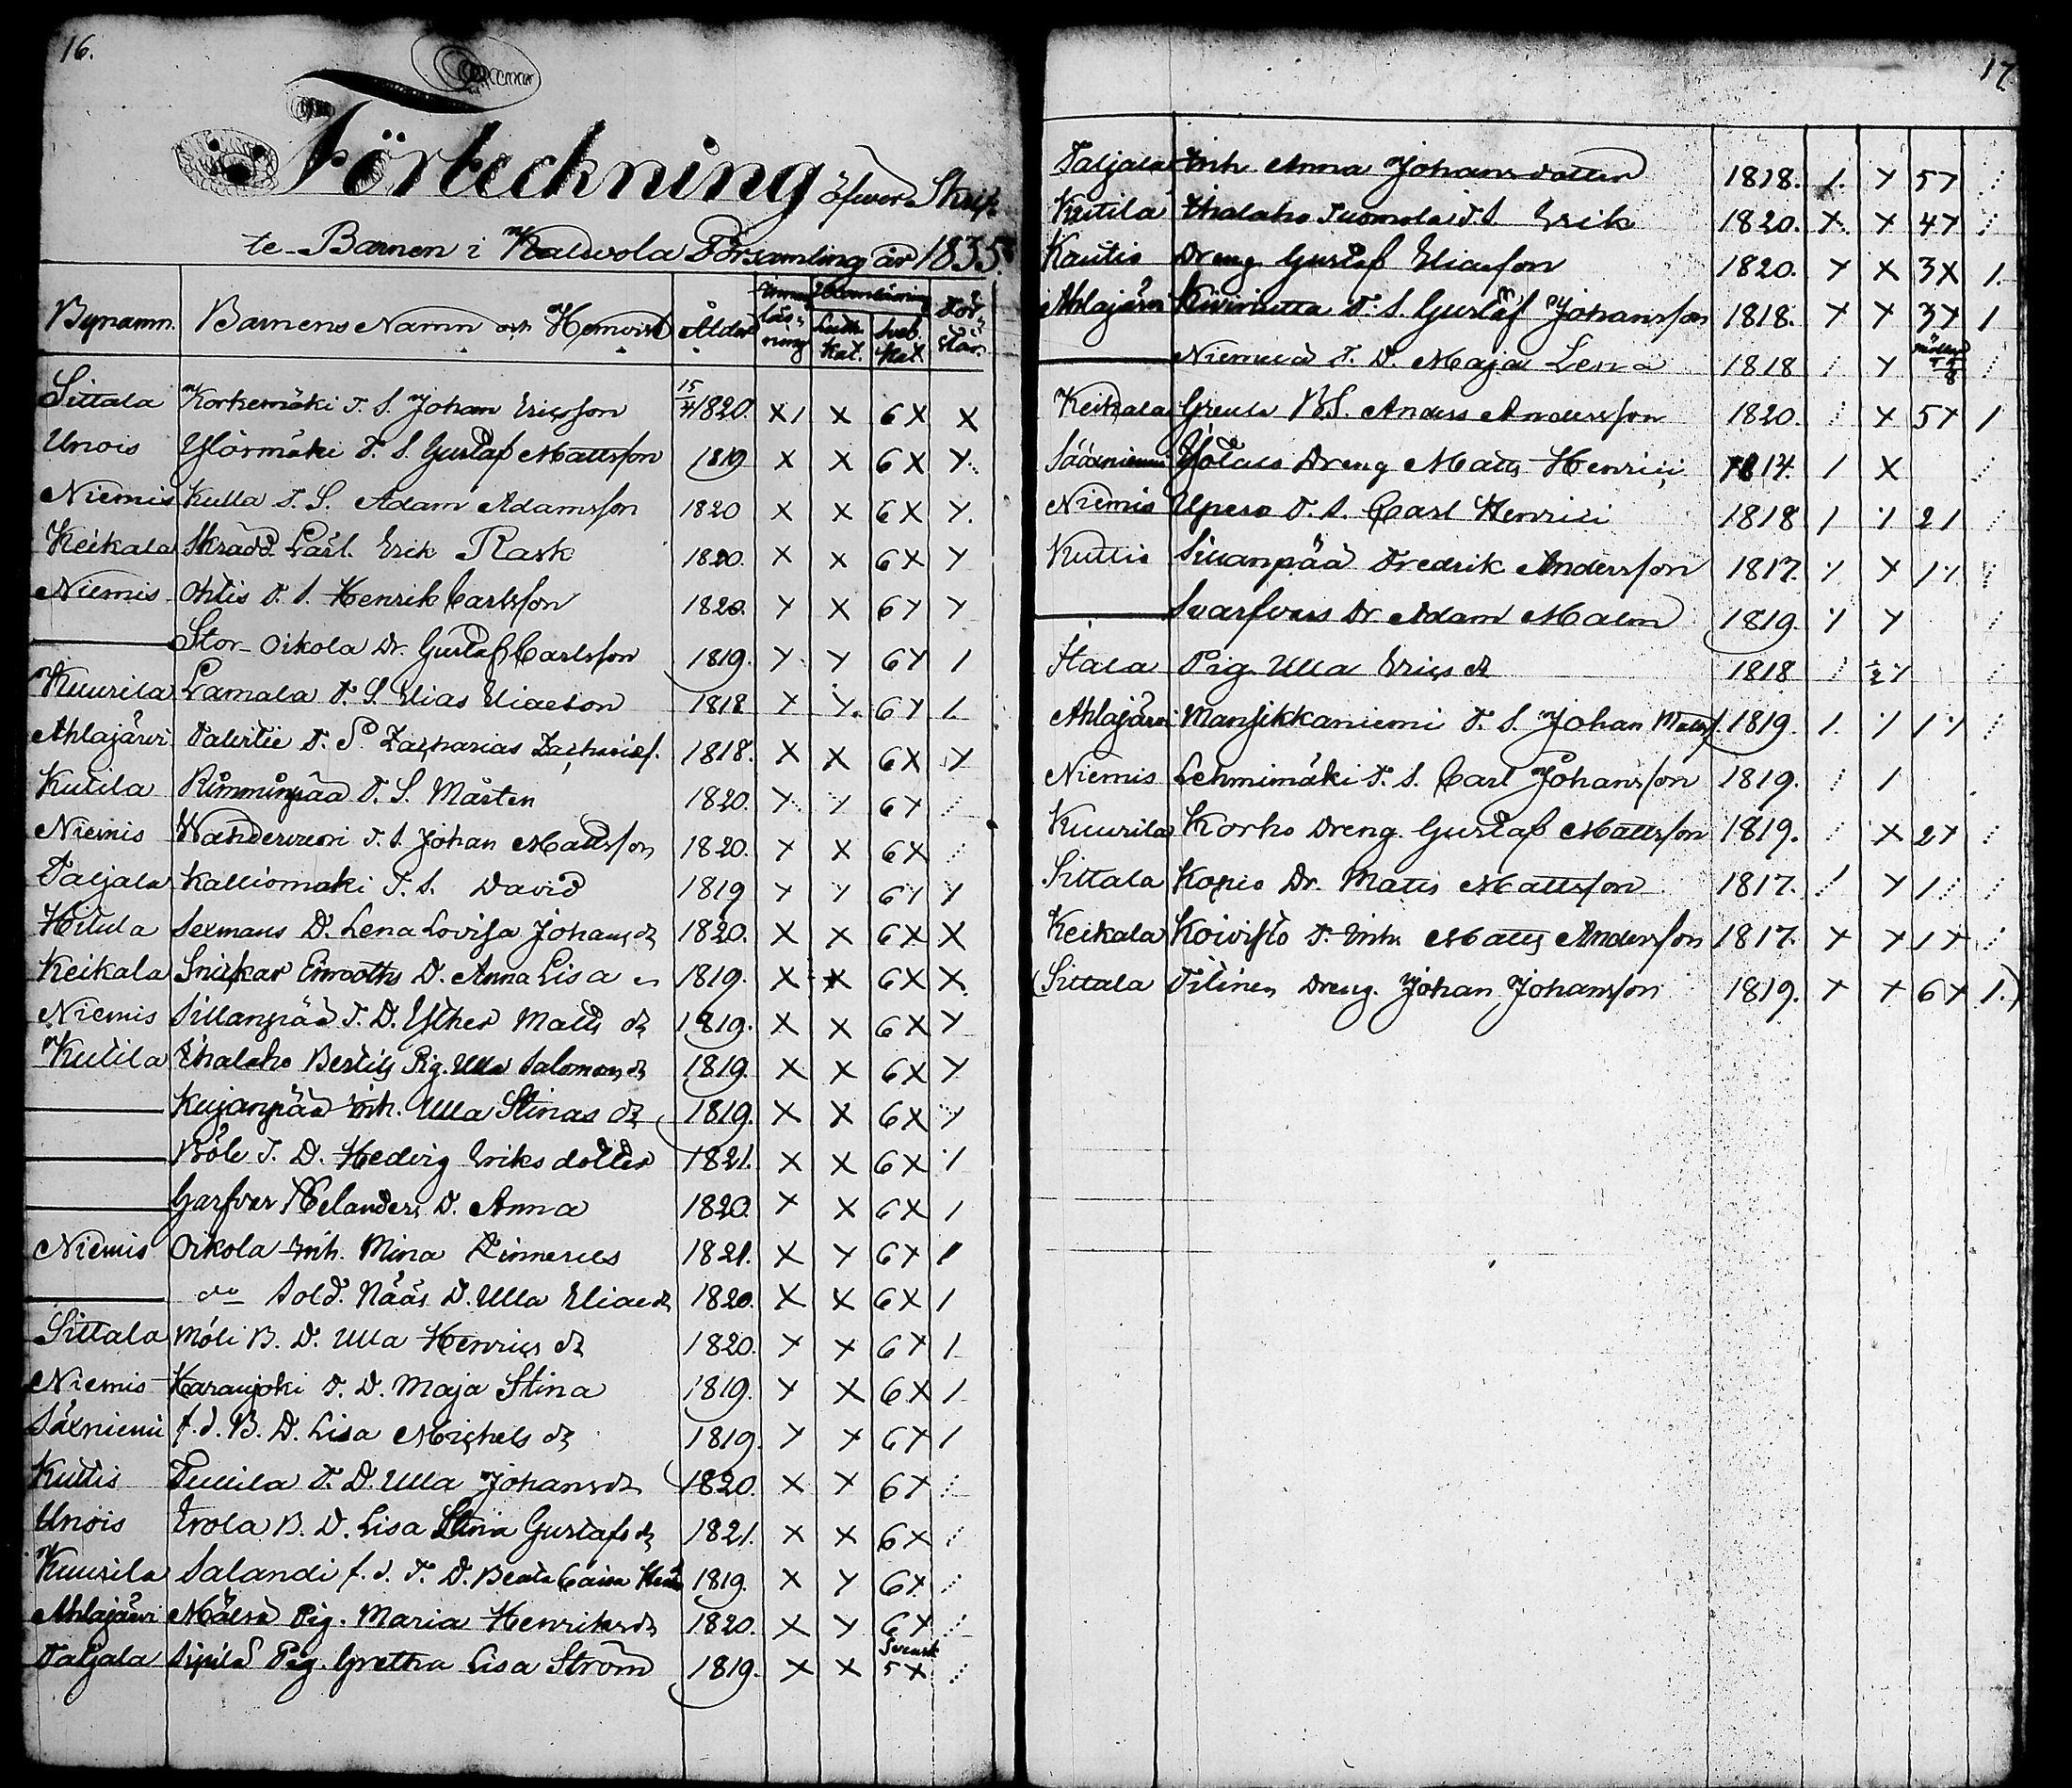 16.
Förteckning öfver Skrif-
te-Barnen i Kalvola Församling år 1835.
Bynamn. Barnens Namn och Hemvist Ålder Innanläsning Utanläsning Förstån.
Luth. Kat. Sveb. Kat.
Sittala Korkemäki T. S. Johan Ericsson 15/7 1820. X 1 X 6 X X
Unois Ylörmäki T. S. Gustaf Mattsson 1819 X X 6 X Y
Niemis Kulla T. S. Adam Adamsson 1820 X X 6 X Y.
Keikala Skrädd. Lärl. Erik Rask 1820. X X 6 X Y
Niemis Ohtis T. S. Henrik Carlsson 1820. Y X 6 Y Y
— Stor-Oikola Dr. Gustaf Carlsson 1819. Y Y 6 Y 1
Kuurila Lamala T. S. Elias Eliasson 1818 Y Y. 6 Y 1.
Ahlajärvi T. S. Zacharias Zachariæs. 1818. X X 6 X Y
Kutila Rimminpää T. S. Mårten 1820. Y Y 6 Y
Niemis T. S. Johan Mattsson 1820. Y X 6 X
Taljala Kalliomäki T. S. David 1819 Y Y 6 Y Y
Hitula Sexmans D. Lena Lovisa Johans dr 1820. X X 6 X X
Keikala Snickar Enrooths D. Anna Lisa 1819. X X 6 X X.
Niemis Sillanpää T. D. Esther Matts dr 1819. X X 6 X Y
Kutila Ihalaho Bertils Pig. Ulla Salomons dr 1819. X X 6 X Y
— Kujanpää Inh. Ulla Stinas dr 1819. X X 6 X Y
— Böle T. D. Hedvig Eriks dotter 1821. X X 6 X 1
— Garfvar Helanders D. Anna 1820. Y X 6 X 1
Niemis Oikola Inh. Mina 1821. X Y 6 Y 1
— do Sold. Nääs D. Ulla Elias dr 1820. X X 6 X 1
Sittala Möli B. D. Ulla Henrics dr 1820. Y Y 6 Y 1
Niemis Haranjoki T. D. Maja Stina 1819. Y X 6 X 1
Säxniemi f. d. B. D. Lisa Michels dr 1819. Y Y 6 Y 1
Kuttis T. D. Ulla Johans dr 1820. X Y 6 Y
Unois Erola B. D. Lisa Stina Gustafs dr 1821. X X 6 X
Kuurila Salandi f. d. T. D. Beata Caisa 1819. X Y 6 Y
Ahlajärvi Mälsä Pig. Maria Henriks dr 1820. X Y 6 Y
Svensk
Taljala Sipilä Pig. Gretha Lisa Ström 1819. X X 5 X
17
Taljala Inh. Anna Johansdotter 1818. 1. Y 5 Y
Kutila Ihalaho Tuomola T. S. Erik 1820. X. X 4 Y
Kautis Dreng Gustaf Eliasson 1820. Y X 3 X 1.
Ahlajärvi Kivinutta T. S. Gustaf Johansson 1818. Y Y 3 Y 1
— Niemilä T. D. Maja Lena 1818 Y
Keikala Greula B. S. Anders Andersson 1820. X 5 Y 1
Sääxniemi Dreng Matts Henrici 1814. 1 X
Niemis Upero T. S. Carl Henrici 1818 1 Y 2 1
Kuttis Sillanpää Fredrik Andersson 1817. Y Y 1 Y
— Svarfvars Dr Adam Malm 1819. Y Y
Itala Pig. Ulla Erics dr 1818 ½ Y
Ahlajärvi Mansikkaniemi T. S. Johan Matts. 1819. 1. Y 1 Y
Niemis Lehmimäki T. S. Carl Johansson 1819. 1
Kuurila Korho Dreng. Gustaf Mattsson 1819. X 2 Y
Sittala Kopio Dr. Matts Mattsson 1817. 1 Y 1
Keikala Koivisto T. Inh. Matts Andersson 1817. Y Y 1 Y
(Sittala Tilinen Dreng. Johan Johansson 1819. Y Y 6 Y 1.)